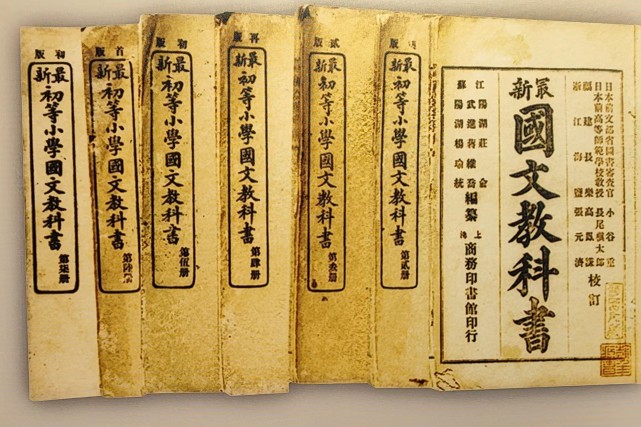 日本前文部省圖書審查官 小谷重
日本前高等師範學校教授 長尾槇太郎
福建長樂高鳳謙
浙江海鹽張元濟
校訂
最新
國文教科書
江蘇
陽湖莊俞
武進蔣維喬
陽湖楊瑜統
編纂
上海 商務印書館印行
版
最新
初等小學國文教科書
第貳册
貳版
最新
初等小學國文教科書
第叁册
再版
最新
初等小學國文教科書
第肆册
初版
最新
初等小學國文教科書
第伍册
首版
最新
初等小學國文教科書
第陸册
初版
最新
初等小學國文教科書
第柒册